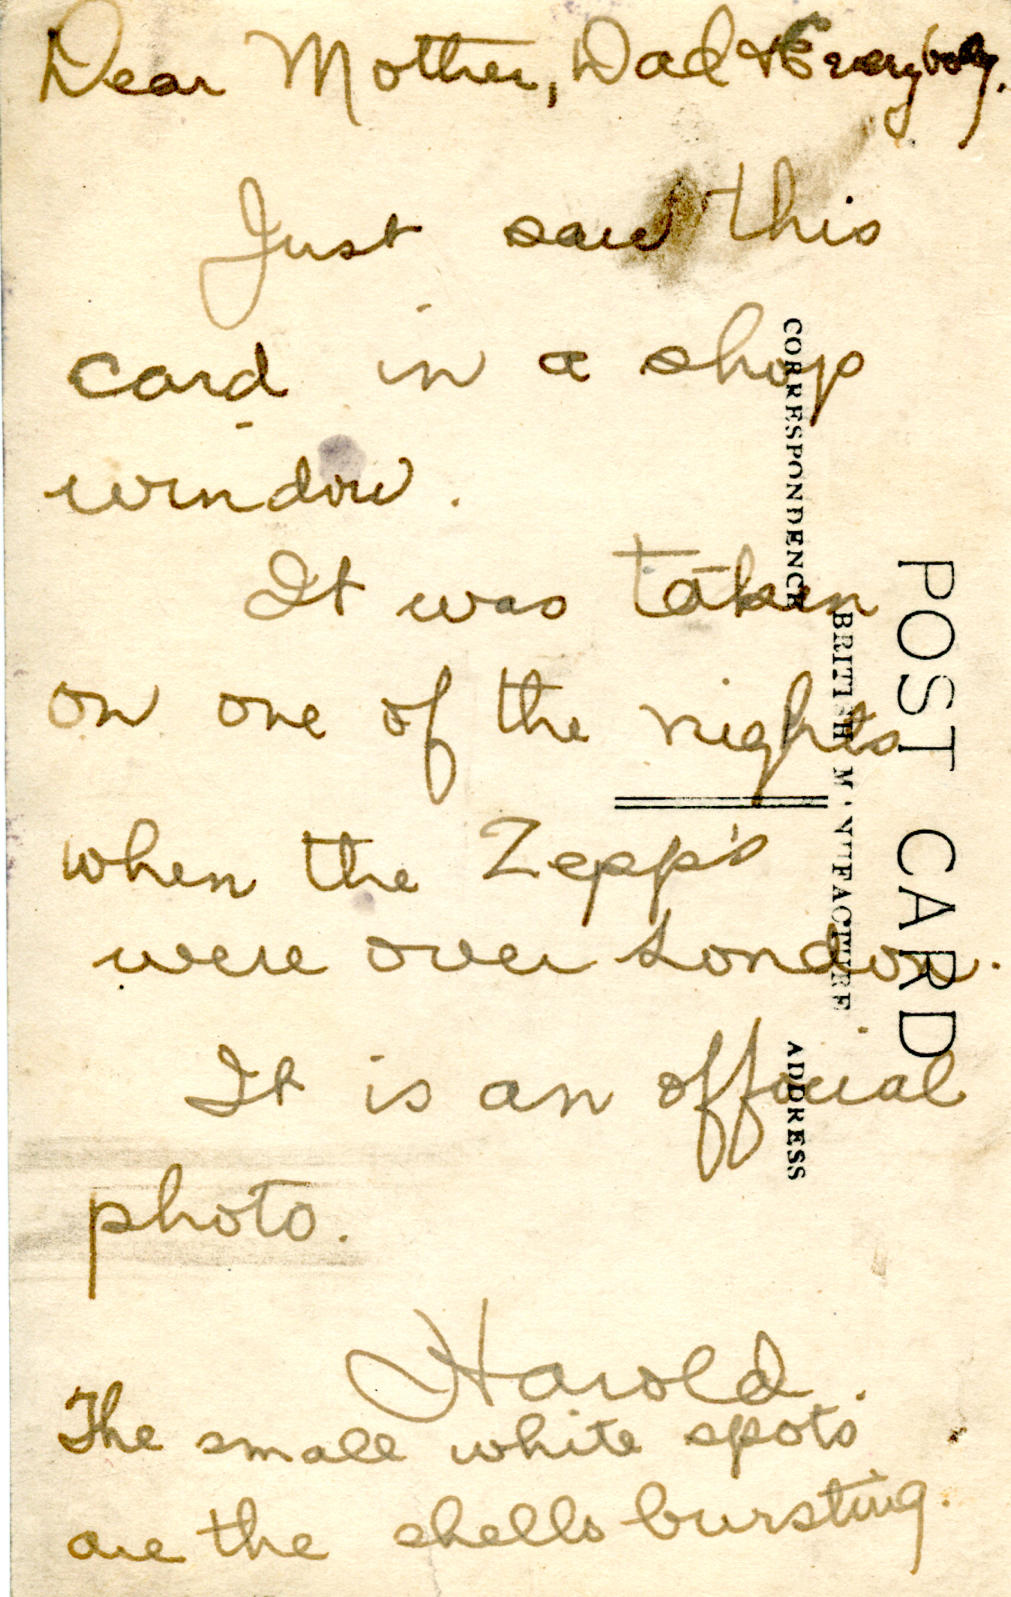 Dear Mother, Dad & Everybody.
Just saw this
card in a shop
window.
It was taken
on one of the nights
when the Zepp's
were over London.
It is an official
photo.
Harold.
The small white spots
are the shells bursting.
POST CARD
BRITISH M'NUFACTURE
CORRESPONDENCE
ADDRESS